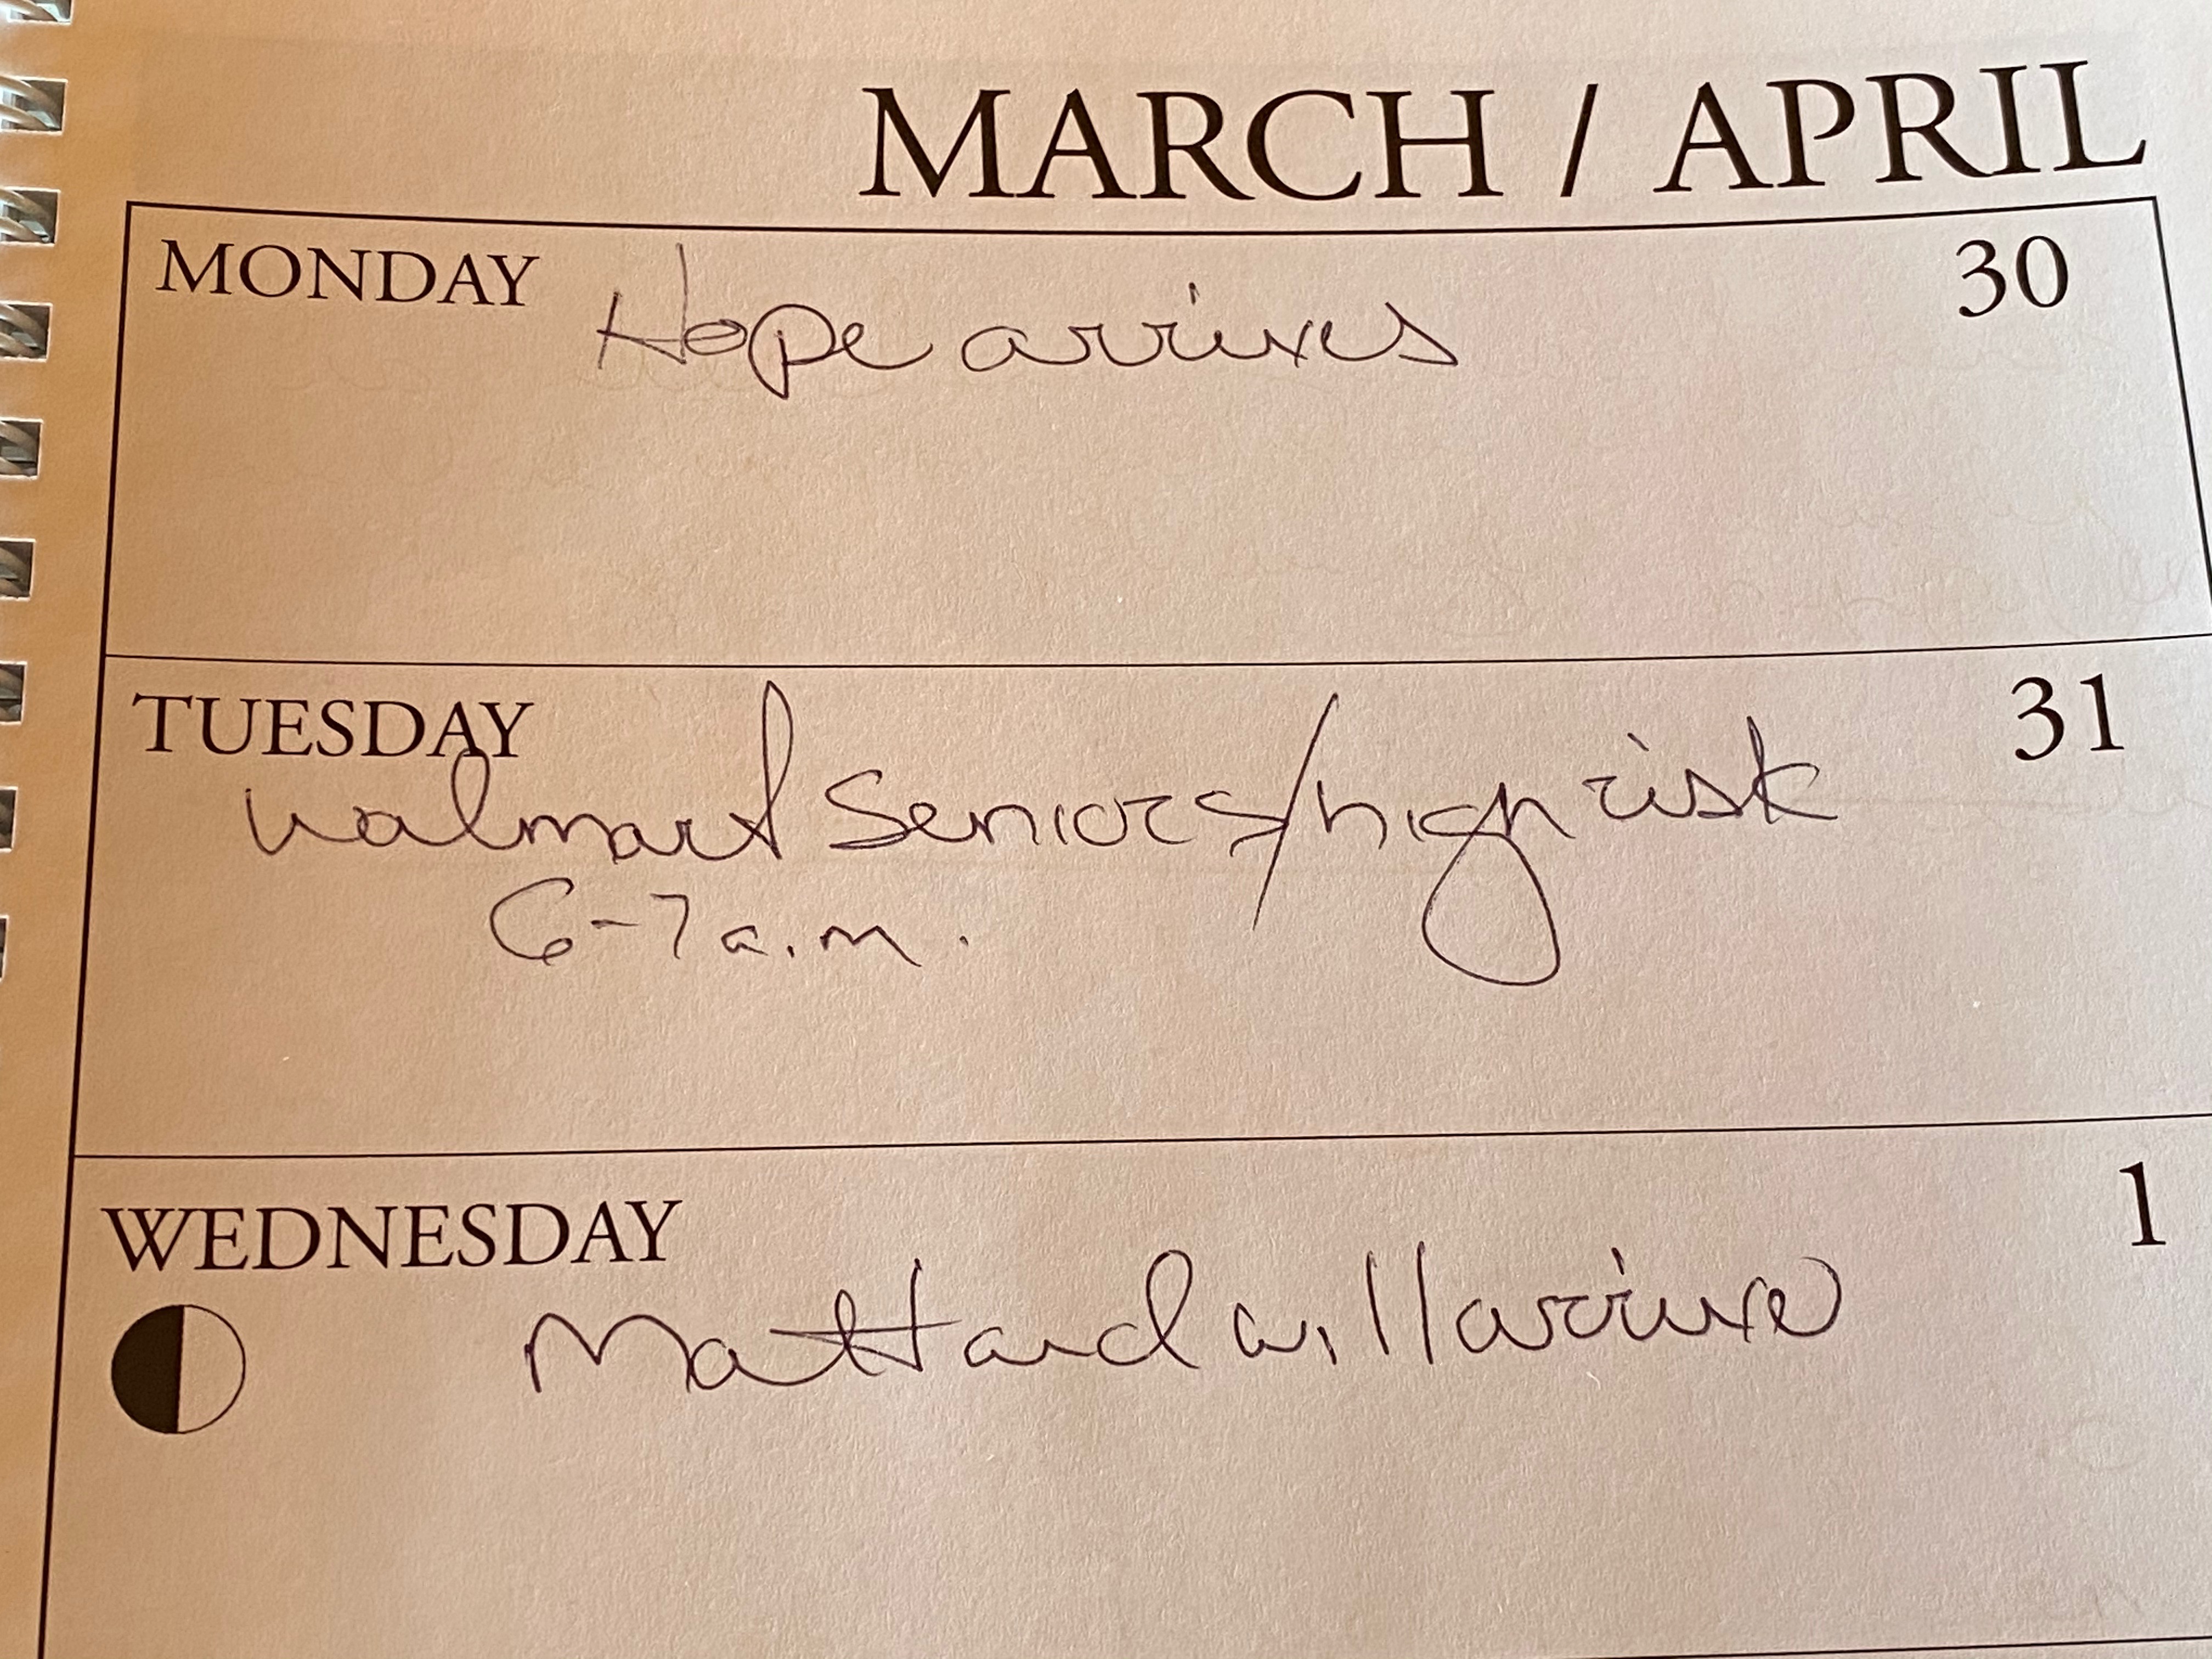 MARCH / APRIL
MONDAY Hope arrives 30
TUESDAY 31
Walmart Seniors/high risk
6-7 a.m.
WEDNESDAY 1
Matt and will arrive